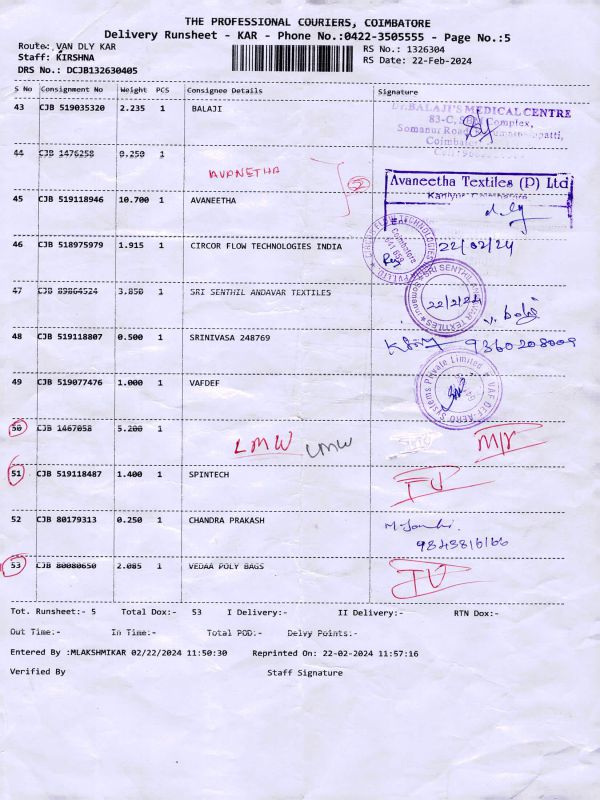 THE PROFESSIONAL COURIERS, COIMBATORE
Delivery Runsheet - KAR - Phone No.:0422-3505555 - Page No.:5
Route: VAN DLY KAR
RS No.: 1326304
Staff: KIRSHNA
RS Date: 22-Feb-2024
DRS No.: DCJB132630405
S No Consignment No Weight PCS Consignee Details Signature
43 CJB 519035320 2.235 1 BALAJI
Dr.BALAJI'S MEDICAL CENTRE
83-C, Complex,
Somanur Road
44 CJB 1476258 0.250 1
AVANETHA
45 CJB 519118946 10.700 1 AVANEETHA
Avaneetha Textiles (P) Ltd
46 CJB 518975979 1.915 1 CIRCOR FLOW TECHNOLOGIES INDIA
22/02/24
47 CJB 89864524 3.850 1 SRI SENTHIL ANDAVAR TEXTILES
22/2/24
48 CJB 519118807 0.500 1 SRINIVASA 248769
9360208009
49 CJB 519077476 1.000 1 VAFDEF
50 CJB 1467058 5.200 1
LMW LMW
51 CJB 519118487 1.400 1 SPINTECH
52 CJB 80179313 0.250 1 CHANDRA PRAKASH
9843816166
53 CJB 80080650 2.085 1 VEDAA POLY BAGS
Tot. Runsheet:- 5 Total Dox:- 53 I Delivery:- II Delivery:- RTN Dox:-
Out Time:- In Time:- Total POD:- Delvy Points:-
Entered By :MLAKSHMIKAR 02/22/2024 11:50:30 Reprinted On: 22-02-2024 11:57:16
Verified By Staff Signature